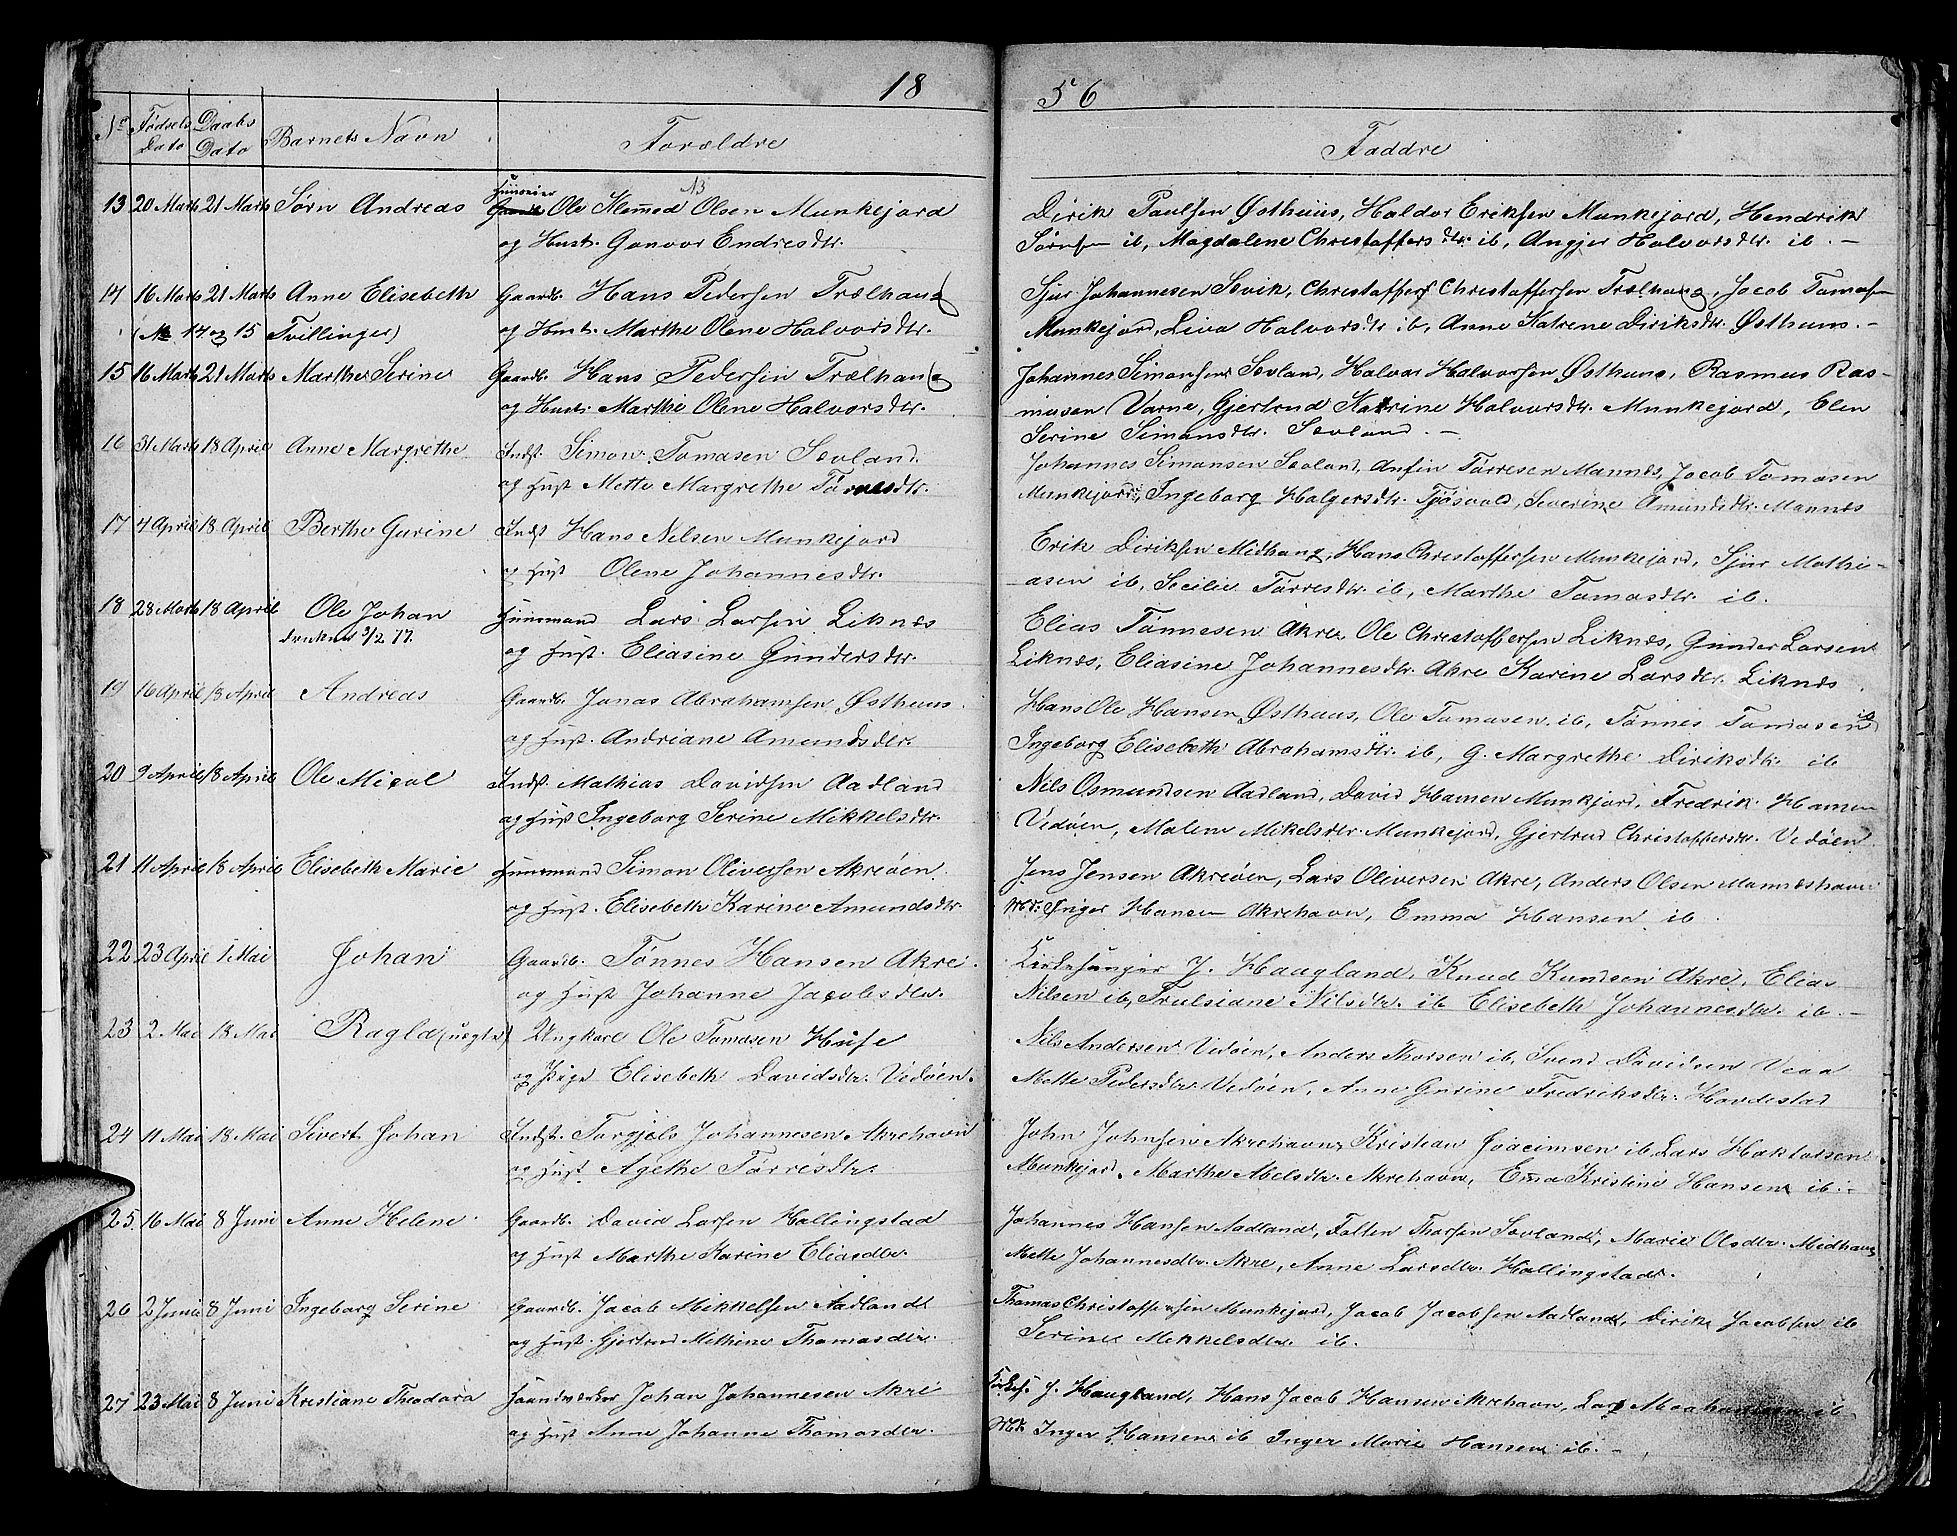 18 56
No Fødsels Dato Daabs Dato Barnets Navn Forældre Faddre
13 20 Marts 21 Marts Sørn Andreas Ole Olsen Munkejord
og Hustr. Gunvor Endresdtr.
Dirik Paulsen Østhuus, Haldor Eriksen Munkejord, Hendrik
Sørnsen ib, Magdalene Christoffersdtr. ib, Angjer Halvorsdtr. ib. —
14 16 Marts 21 Marts Anne Elisebeth Gaardb. Hans Pedersen Trælhaug
(No 14 og 15 Tvillinger) og Hustr. Marthe Olene Halvorsdtr.
Sjur Johannesen Sevik, Christoffer Christoffersen Trælhaug, Jacob Tomasen
Munkejord, Liva Halvorsdtr ib, Anne Katrene Diriksdtr. Østhuus. —
15 16 Marts 21 Marts Marthe Serine Gaardb. Hans Pedersen Trælhaug
og Hustr. Marthe Olene Halvorsdtr.
Johannes Simonsen Sevland, Halvor Halvorsen Østhuus, Rasmus Ras-
musen Varne, Gjertrud Katrine Halvorsdtr. Munkejord, Elen
Serine Simonsdtr. Sevland. —
16 31 Marts 18 April Anne Margrethe Indst. Simon Tomasen Sevland
og Hust Mette Margrethe Tørresdtr.
Johannes Simonsen Sevland, Anfin Tørresen Mannes, Jacob Tomasen
Munkejord, Ingeborg Holgersdtr. Tjøsvold, Severine Amundsdtr. Mannes
17 4 April 18 April Berthe Gurine Indst Hans Nilsen Munkejord
og Hust Olene Johannesdtr.
Erik Diriksen Midhaug, Hans Christoffersen Munkejord, Sjur Mathi-
asen ib, Secilie Tørresdtr. ib, Marthe Tomasdtr. ib.
18 28 Marts 18 April Ole Johan Huusmand Lars Larsen Liknes
3/2 77. og Hust. Eliasine Gundersdtr.
Elias Tønnesen Akre, Ole Christoffersen Liknes, Gunder Larsen
Liknes, Eliasine Johannesdtr. Akre Karine Larsdtr. Liknes
19 16 April 18 April Andreas Gaardb. Jonas Abrahamsen Østhuus
og Hust. Andriane Amundsdtr.
Hans Ole Hansen Østhuus, Ole Tomasen ib, Tønnes Tomasen ib
Ingeborg Elisebeth Abrahamsdtr. ib, G. Margrethe Diriksdtr. ib
20 9 April 18 April Ole Mical Indst. Mathias Davidsen Aadland
og Hust Ingeborg Serine Mikkelsdtr.
Nils Osmundsen Aadland, David Hansen Munkjord, Fredrik Hansen
Vedøen, Malene Mikelsdtr. Munkejord, Gjertrud Christoffersdtr. Vedøen
21 11 April 18 April Elisebeth Marie Huusmand Simon Oliversen Akreøen
og Hust. Elisebeth Karine Amundsdtr.
Jens Jensen Akreøen, Lars Oliversen Akre, Anders Olsen Mannshavn
Md. Inger Hansen Akrehavn, Emma Hansen ib.
22 23 April 1 Mai Johan Gaardb. Tønnes Hansen Akre
og Hust Johanne Jacobsdtr.
Kirkesanger J. Haugland, Knud Knudsen Akre, Elias
Nilsen ib, Trulsiane Nilsdtr. ib Elisebeth Johannesdtr. ib. —
23 2 Mai 18 Mai Ragla (uegte) Ungkarl Ole Tomasen
og Pige Elisebeth Davidsdtr. Vedøen.
Nils Andersen Vedøen, Anders Thorsen ib, Svend Davidsen Veaa
Mette Pedersdtr. Vedøen, Anne Gurine Fredriksdtr.
24 11 Mai 18 Mai Sivert Johan Indst. Torgjels Johannesen Akrehavn
og Hust Agethe Tørrisdtr.
John Johnsen Akrehavn, Kristian Joacimsen ib, Lars Haktorsen
Munkjord, Marthe Abelsdtr. Akrehavn, Emma Kristine Hansen ib. —
25. 16 Mai 8 Juni Anne Helene Gaardb. David Larsen Hallingstad
og Hust Marthe Karine Eliasdtr.
Johannes Hansen Aadland, Falten Thorsen Sevland, Marie Olsdtr. Midhaug
Mette Johannesdtr. Akre, Anne Larsdtr. Hallingstad.
26 2 Juni 8 Juni Ingeborg Serine Gaardb. Jacob Mikkelsen Aadland
og Hust. Gjertrud Mithine Thomasdtr.
Thomas Christoffersen Munkejord, Jacob Jacobsen Aadland, Dirik Jacobsen ib
Serine Mekkelsdtr. ib.
27 23 Mai 8 Juni Kristiane Theodora Haandværker Johan Johannesen Akre
og Hust Anne Johanne Thomasdtr.
J. Haugland, Hans Jacob Hansen Akrehavn, Lars ib
Md. Inger Hansen ib Inger Marie Hansen ib. —